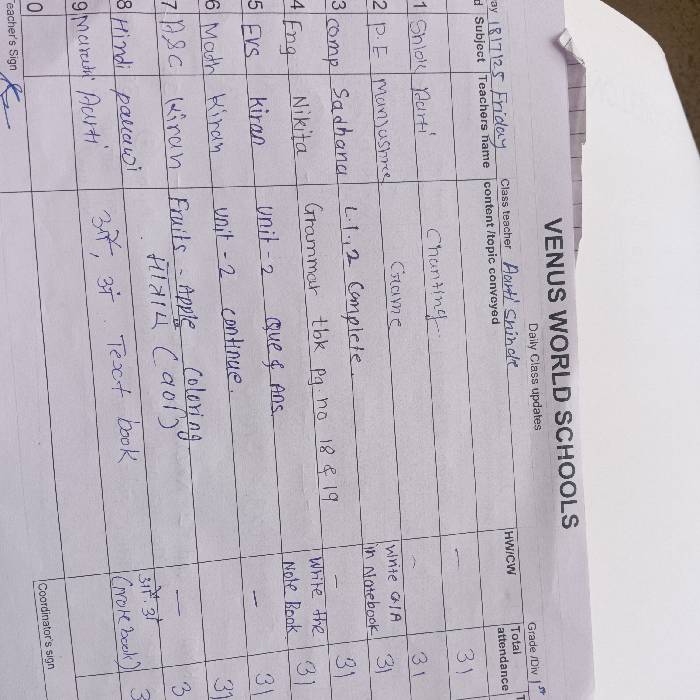 VENUS WORLD SCHOOLS
Daily Class updates
ay 18/7/25 Friday Class teacher Aarti Shinde Grade /Div 1st
d Subject Teachers name content /topic conveyed HW/CW Total attendance
1 Shlok Aarti Chanting. — 31
2 P.E Manjushree Game - 31
3 Comp Sadhana L.1.,2 Complete. Write Q/A in Notebook 31
4 Eng Nikita Grammar tbk pg.no 18 & 19 - 31
5 EVS Kiran unit-2 Que & Ans. Write the Note Book 31
6 Math Kiran unit-2 continue. - 31
7 A&C Kiran Fruits - Apple Coloring 31
8 Hindi — 3
9 Marathi Aarti Text book (Note book) 3
0
eacher's Sign Coordinator's sign